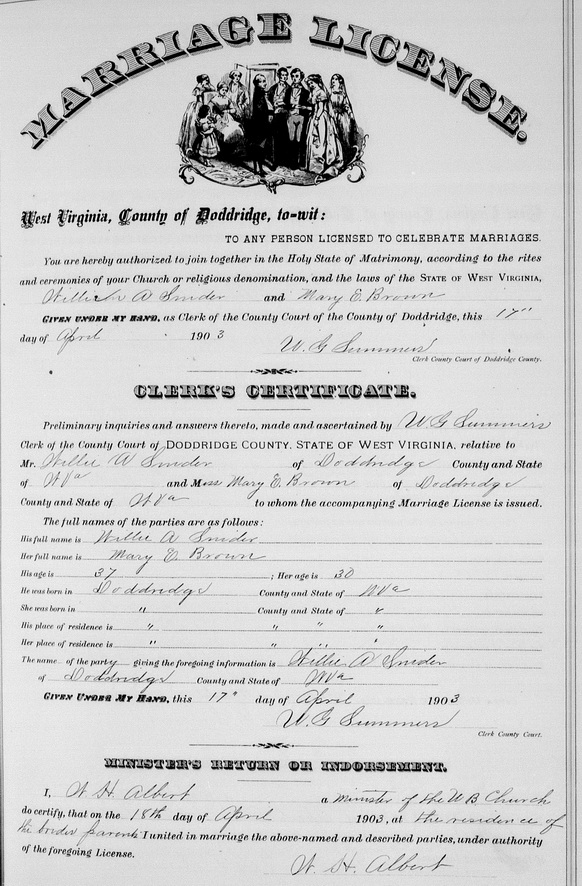 MARRIAGE LICENSE.
West Virginia, County of Doddridge, to-wit:
TO ANY PERSON LICENSED TO CELEBRATE MARRIAGES.
You are hereby authorized to join together in the Holy State of Matrimony, according to the rites
and ceremonies of your Church or religious denomination, and the laws of the STATE OF WEST VIRGINIA,
Willie A Snider and Mary E. Brown
GIVEN UNDER MY HAND, as Clerk of the County Court of the County of Doddridge, this 17"
day of April 1903
W. G Summers
Clerk County Court of Doddridge County.
CLERK'S CERTIFICATE.
Preliminary inquiries and answers thereto, made and ascertained by W G Summers
Clerk of the County Court of DODDRIDGE COUNTY, STATE OF WEST VIRGINIA, relative to
Mr. Willie A Snider of Doddridge County and State
of WVa and Miss Mary E. Brown of Doddridge
County and State of WVa to whom the accompanying Marriage License is issued.
The full names of the parties are as follows:
His full name is Willie A Snider
Her full name is Mary E Brown
His age is 37 ; Her age is 30
He was born in Doddridge County and State of WVa
She was born in " County and State of "
His place of residence is " " " "
Her place of residence is " " " "
The name of the party giving the foregoing information is Willie A Snider
of Doddridge County and State of WVa
GIVEN UNDER MY HAND, this 17" day of April 1903
W. G Summers
Clerk County Court.
MINISTER'S RETURN OR INDORSEMENT.
I, W H Albert a minister of the U B Church
do certify, that on the 18th day of April 1903, at the residence of
the brides parents I united in marriage the above-named and described parties, under authority
of the foregoing License.
W. H. Albert